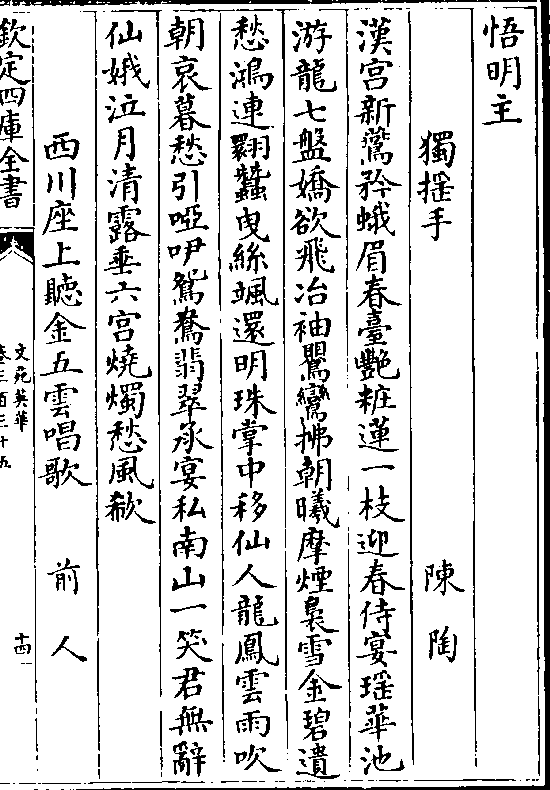 悟明主
獨揺手　陳陶
漢宫新鶯矜蛾眉春臺艷粧蓮一枝迎春侍宴瑶華池
游龍七盤嬌欲飛冶袖鸎鸞拂朝曦摩煙裊雪金碧遺
愁鴻連翾蠶曳絲颯還明珠掌中移仙人龍鳳雲雨吹
朝哀暮愁引啞咿鴛鴦翡翠承宴私南山一笑君無辭
仙娥泣月清露垂六宫燒燭愁風欷
西川座上聽金五雲唱歌　前人
欽定四庫全書
文苑英華
卷三百三十五
十四